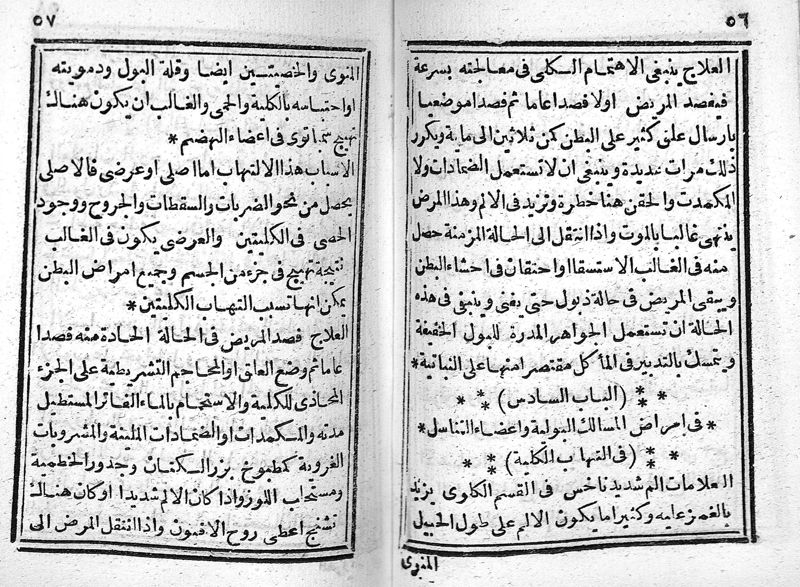 ٥٦
العلاج ينبغى الاهتمام الكلى فى معالجته بسرعة
فيفصد المريض اولا فصدا عاما ثم فصدا موضعيا
بارسال علق كثير على البطن كمن ثلاثين الى ماية ويكرر
ذلك مرات عديدة وينبغى ان لا تستعمل الضمادات ولا
المكمدت والحقن هنا خطرة وتزيد فى الالم وهذا المرض
ينتهى غالبا بالموت واذا انتقل الى الحالة المزمنة حصل
منه فى الغالب الاستسقا او احتقان فى احشاء البطن
ويبقى المريض فى حالة ذبول حتى يفنى وينبغى فى هذه
الحالة ان تستعمل الجواهر المدرة للبول الخفيفة
ويتمسك بالتدبير فى المأكل مقتصرا منها على النباتية *
* * * (الباب السادس) * * *
* فى امراض المسالك البولية واعضاء التناسل *
* * * (فى التهاب الكلية) * * *
العلامات الم شديد ناخس فى القسم الكلوى يزيد
بالغمز عليه وكثيرا ما يكون الالم على طول الحبيل
المنوى
٥٧
المنوى والخصيتين ايضا وقلة البول ودمويته
او احتباسه بالكلية والحمى والغالب ان يكون هناك
تهيج سمباتوى فى اعضاء الهضم *
الاسباب هذا الالتهاب اما اصلى او عرضى فالاصلى
يحصل من نحو الضربات والسقطات والجروح ووجود
الحصى فى الكليتين والعرضى يكون فى الغالب
نتيجة تهيج فى جزء من الجسم وجميع امراض البطن
يمكن انها تسبب التهاب الكليتين *
العلاج فصد المريض فى الحالة الحادة منه فصدا
عاما ثم وضع العلق او المحاجم التشريطية على الجزء
المحاذى للكلية والاستحمام بالماء الفاتر المستطيل
مدته والمكمدات او الضمادات الملينة والمشروبات
الغروية كمطبوخ بزر الكتان وجدور الخطمية
ومستحلب اللوز واذا كان الالم شديدا او كان هناك
تشنج اعطى روح الافيون واذا انتقل المرض الى